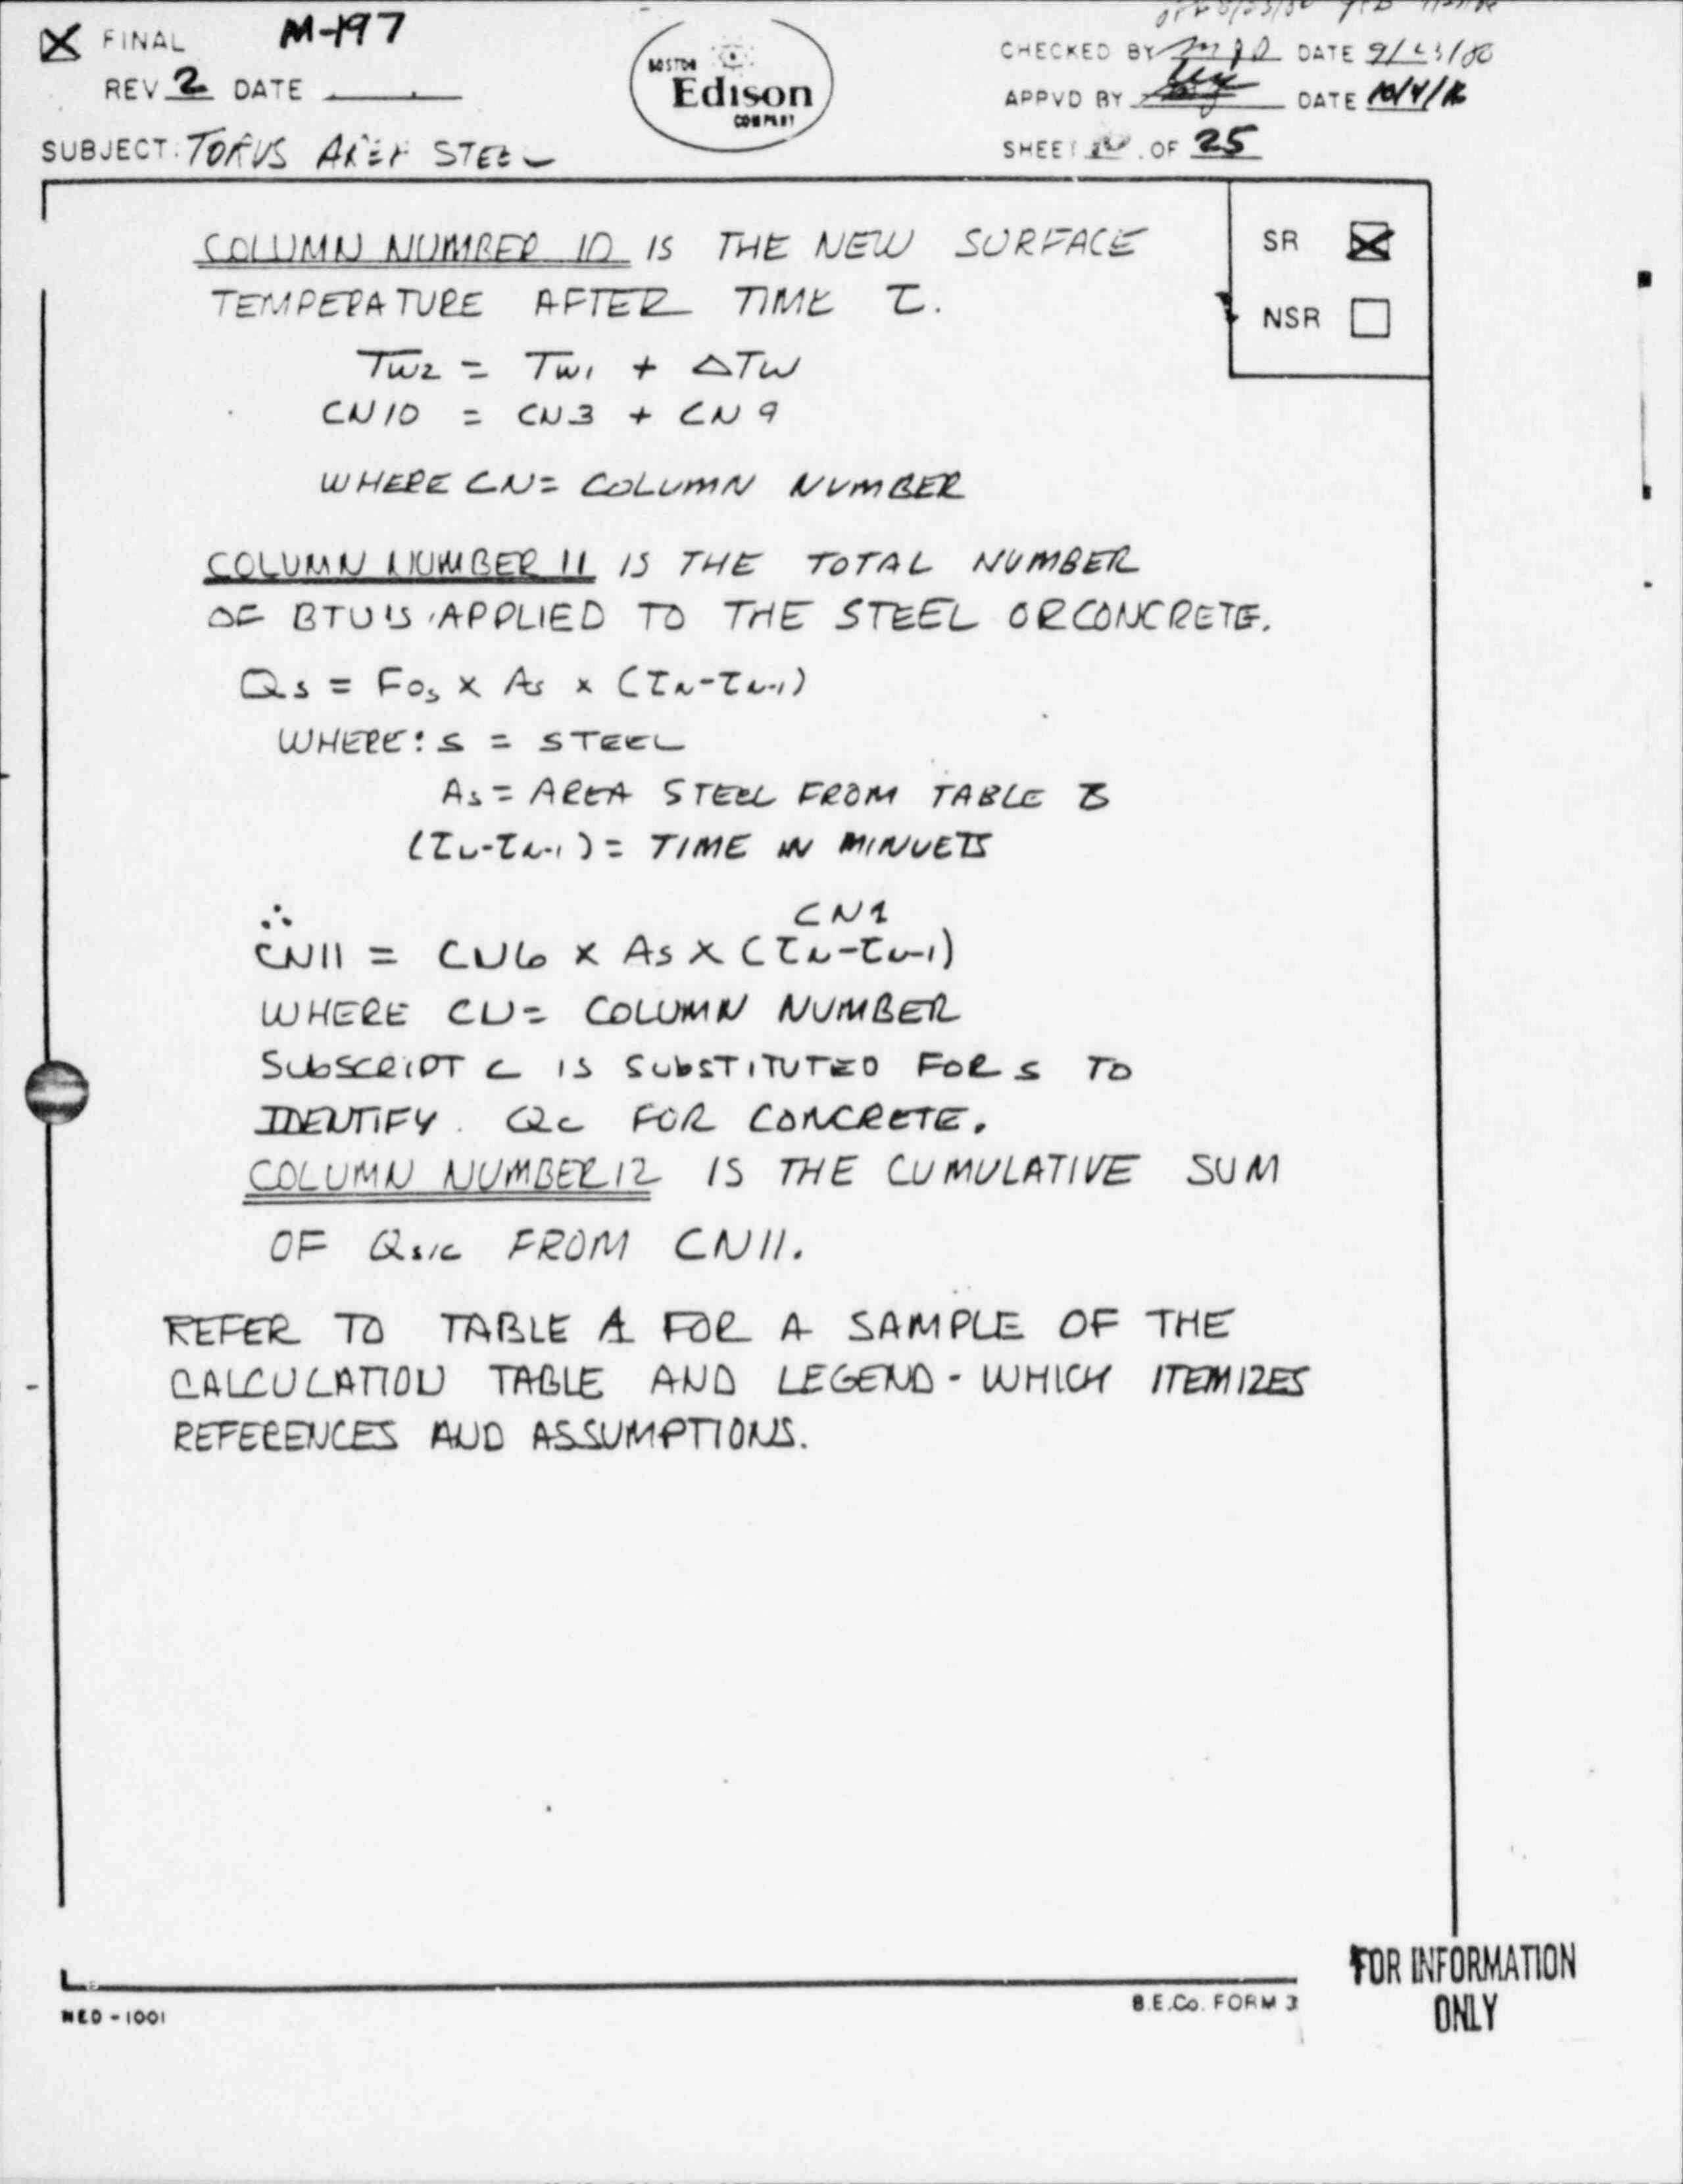 FINAL M-197
REV 2 DATE
BOSTON
Edison
COMPANY
CHECKED BY DATE 9/23/86
APPVD BY DATE 10/4/86
SHEET OF 25
SUBJECT: TORUS AREA STEEL
SR
NSR
COLUMN NUMBER 10 IS THE NEW SURFACE
TEMPERATURE AFTER TIME τ.
TW2 = TW1 + ΔTW
CN10 = CN3 + CN9
WHERE CN= COLUMN NUMBER
COLUMN NUMBER 11 IS THE TOTAL NUMBER
OF BTU'S APPLIED TO THE STEEL OR CONCRETE.
Qs = Fos x As x (τN-τN-1)
WHERE: S = STEEL
As = AREA STEEL FROM TABLE B
(τN-τN-1) = TIME IN MINUETS
CN1
∴ CN11 = CN6 x As x (τN-τN-1)
WHERE CN= COLUMN NUMBER
SUBSCRIPT C IS SUBSTITUTED FOR S TO
IDENTIFY Qc FOR CONCRETE.
COLUMN NUMBER 12 IS THE CUMULATIVE SUM
OF Qs/c FROM CN11.
REFER TO TABLE A FOR A SAMPLE OF THE
CALCULATION TABLE AND LEGEND - WHICH ITEMIZES
REFERENCES AND ASSUMPTIONS.
FOR INFORMATION
ONLY
NED-1001
B.E.Co. FORM 3